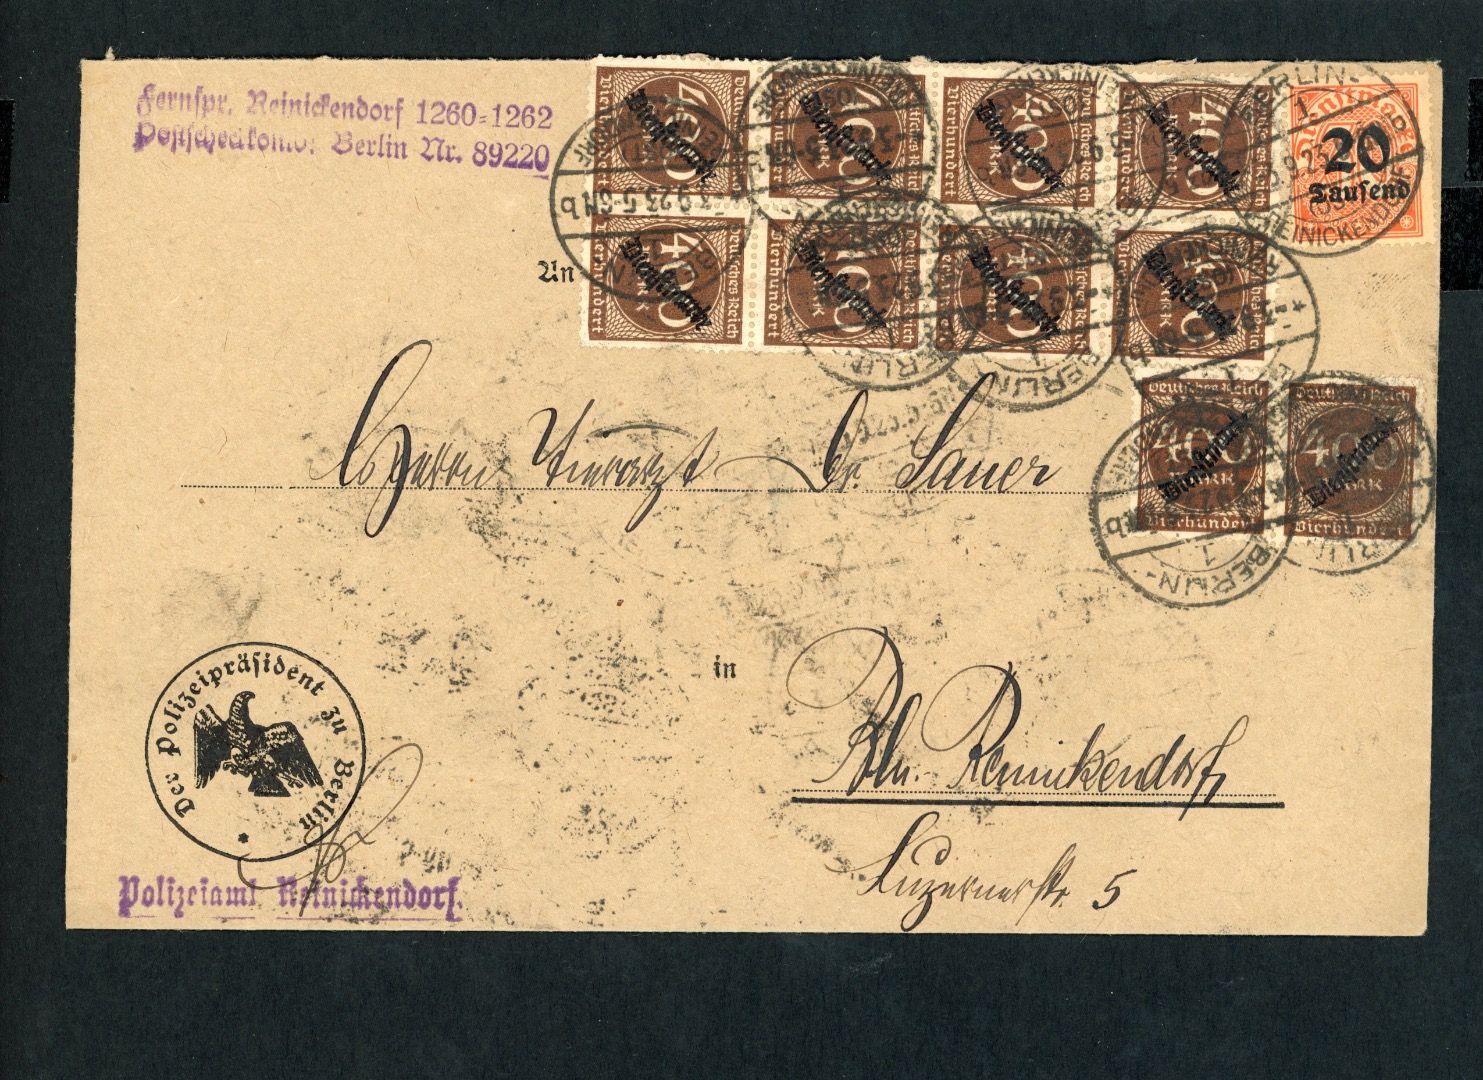 Fernspr. Reinickendorf 1260-1262
Postscheckkonto: Berlin Nr. 89220
Deutsches Reich
400
MARK
Vierhundert
Dienstmarke
20
Tausend
BERLIN-
REINICKENDORF
1
-3.9.23.5-6N
b
An
Herrn Tierarzt Dr. Sauer
in
Bln. Reinickendorf
Luzernerstr. 5
Der Polizeipräsident zu Berlin
Polizeiamt Reinickendorf.